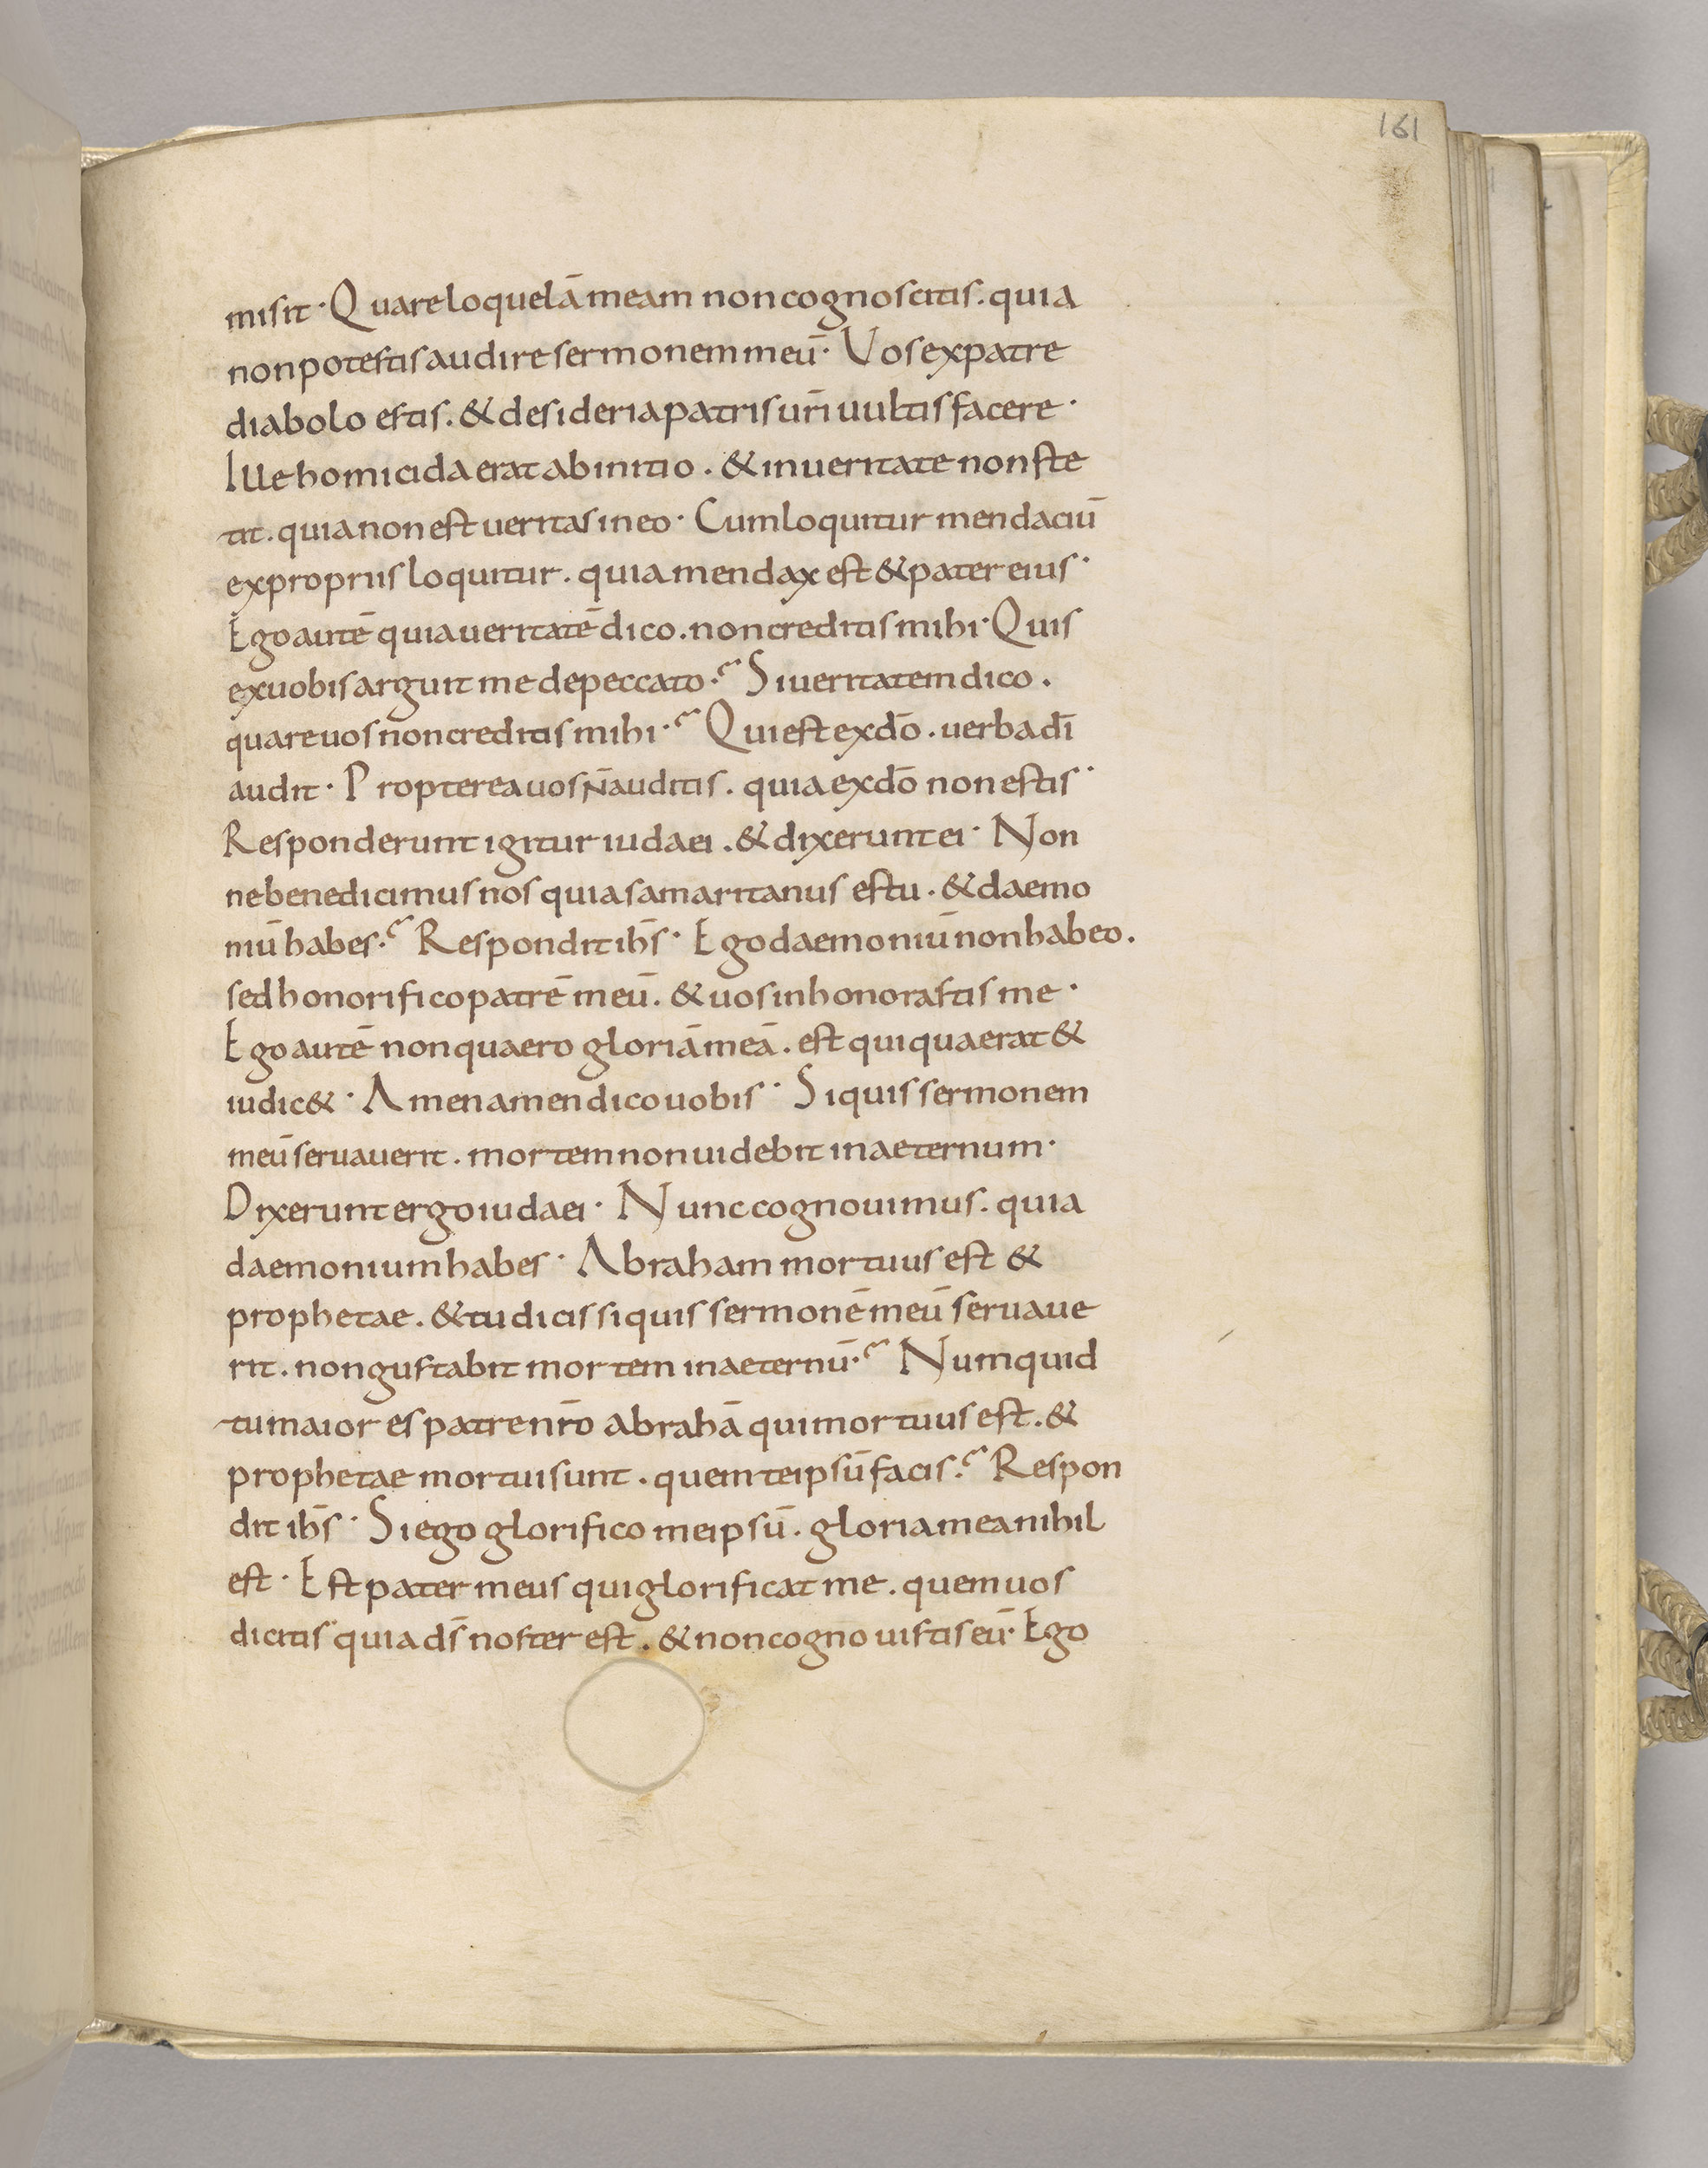 161
misit · Quare loquelā meam non cognoscitis. quia
non potestis audire sermonem meū· Vos ex patre
diabolo estis. & desideria patris urī uultis facere ·
Ille homicida erat ab initio . & in ueritate non ste
tit. quia non est ueritas in eo · Cum loquitur mendaciū
ex propriis loquitur. quia mendax est & pater eius ·
Ego autē quia ueritatē dico. non creditis mihi· Quis
ex uobis arguit me de peccato? Si ueritatem dico .
quare uos non creditis mihi? Qui est ex dō . uerba dī
audit · Propterea uos n̄ auditis. quia ex dō non estis ·
Responderunt igitur iudaei . & dixerunt ei · Non
ne bene dicimus nos quia samaritanus es tu . & daemo
niū habes? Respondit ihs̄ · Ego daemoniū non habeo.
sed honorifico patrē meū. & uos inhonorastis me ·
Ego autē non quaero gloriā meā . est qui quaerat &
iudic& · Amen amen dico uobis · Si quis sermonem
meū seruauerit . mortem non uidebit in aeternum ·
Dixerunt ergo iudaei · Nunc cognouimus. quia
daemonium habes · Abraham mortuus est &
prophetae. & tu dicis si quis sermonē meū seruaue
rit . non gustabit mortem in aeternū? Numquid
tu maior es patre nrō abrahā qui mortuus est . &
prophetae mortui sunt . quem te ipsū facis? Respon
dit ihs̄ · Si ego glorifico me ipsū . gloria mea nihil
est · Est pater meus qui glorificat me . quem uos
dicitis quia ds̄ noster est . & non cognouistis eū· Ego